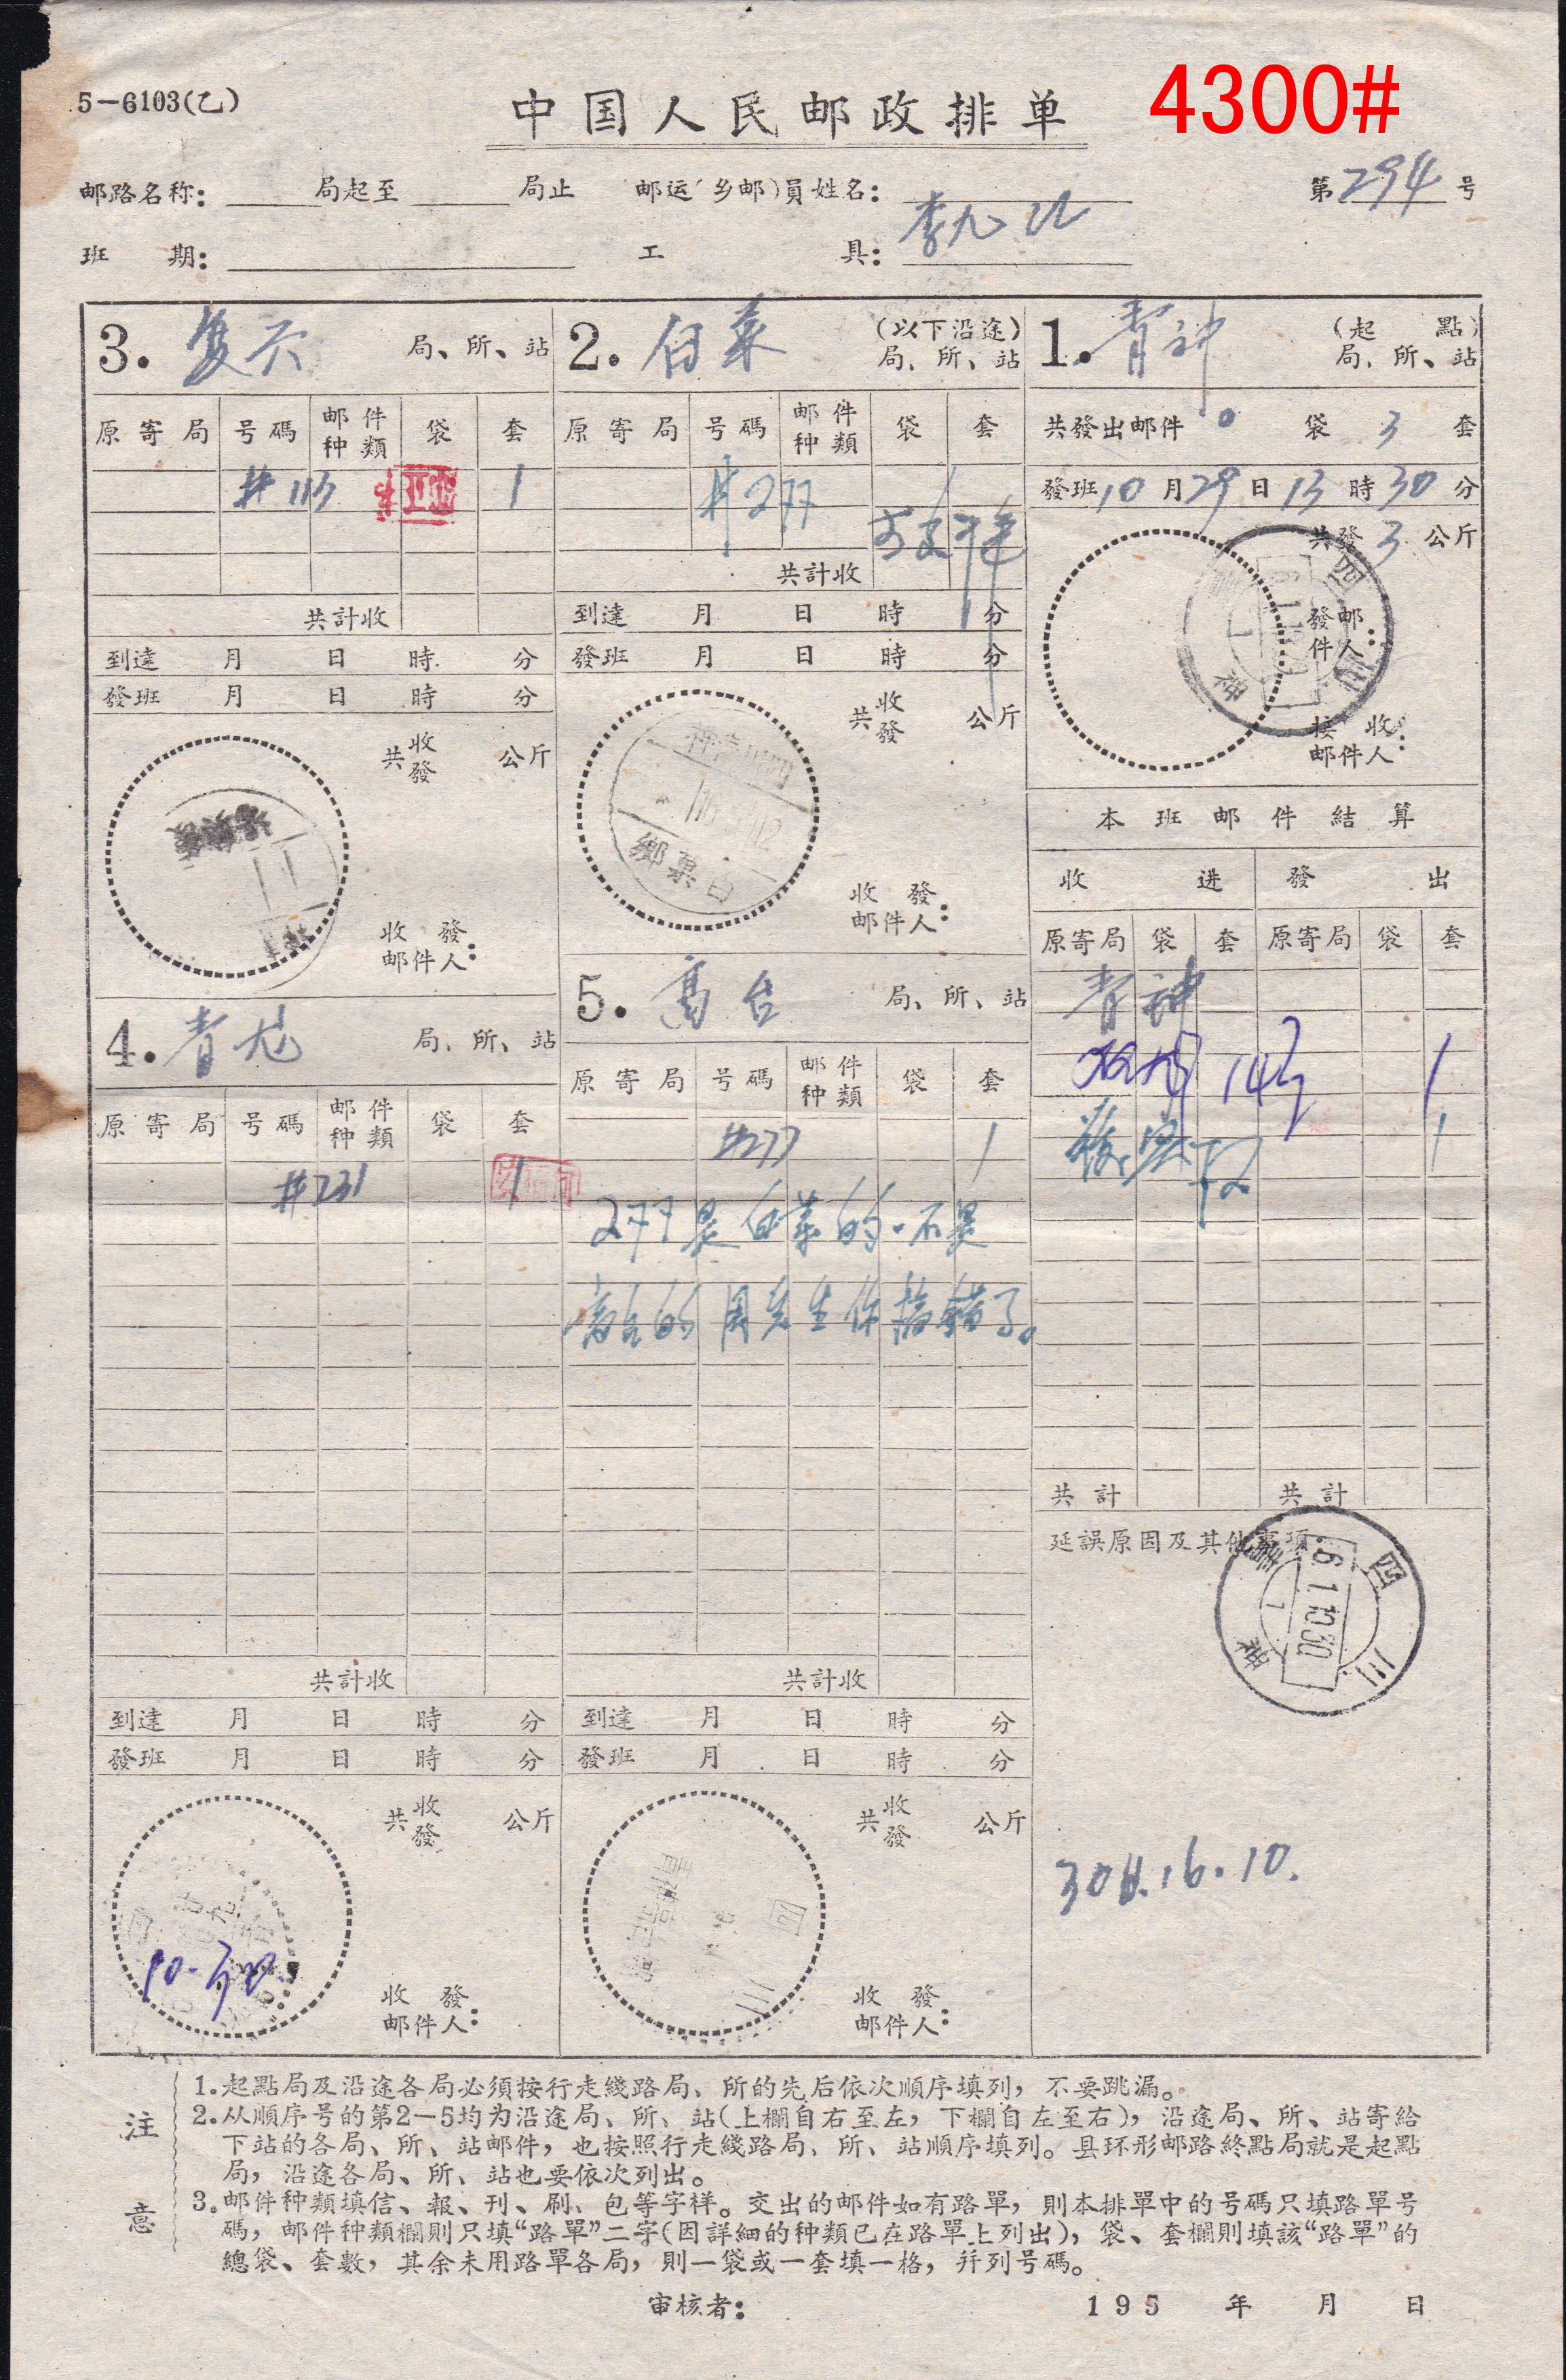 4300#
5-6103(乙)
中国人民邮政排单
邮路名称: 局起至 局止 邮运(乡邮)員姓名:
第294号
班 期: 工 具:
1. 青神 (起 點) 局、所、站
共發出邮件 0 袋 3 套
發班 10 月 29 日 13 時 30 分
共發 3 公斤
發邮件人:
接收邮件人:
四川
本班邮件結算
收进 發出
原寄局 袋 套 原寄局 袋 套
青神
1
1
共計 共計
延誤原因及其他事項:
四川
6.1.10.30
1
30日.16.10.
2. 白菓 (以下沿途) 局、所、站
原寄局 号碼 邮件种類 袋 套
#277
共計收
到達 月 日 時 分
發班 月 日 時 分
共收發 公斤
四川青神
白菓鄉
收發邮件人:
3. 复兴 局、所、站
原寄局 号碼 邮件种類 袋 套
#113 1
共計收
到達 月 日 時 分
發班 月 日 時 分
共收發 公斤
收發邮件人:
4. 青龙 局、所、站
原寄局 号碼 邮件种類 袋 套
#231 1
共計收
到達 月 日 時 分
發班 月 日 時 分
共收發 公斤
10.30
收發邮件人:
5. 高台 局、所、站
原寄局 号碼 邮件种類 袋 套
#277 1
277是白菓的.不是
高台的周先生你搞錯了。
共計收
到達 月 日 時 分
發班 月 日 時 分
共收發 公斤
四川
收發邮件人:
注意
1.起點局及沿途各局必須按行走綫路局、所的先后依次順序填列，不要跳漏。
2.从順序号的第2-5均为沿途局、所、站(上欄自右至左，下欄自左至右)，沿途局、所、站寄給
下站的各局、所、站邮件，也按照行走綫路局、所、站順序填列。县环形邮路終點局就是起點
局，沿途各局、所、站也要依次列出。
3.邮件种類填信、報、刊、刷、包等字样。交出的邮件如有路單，則本排單中的号碼只填路單号
碼，邮件种類欄則只填“路單”二字(因詳細的种類已在路單上列出)，袋、套欄則填該“路單”的
總袋、套數，其余未用路單各局，則一袋或一套填一格，幷列号碼。
审核者: 195 年 月 日